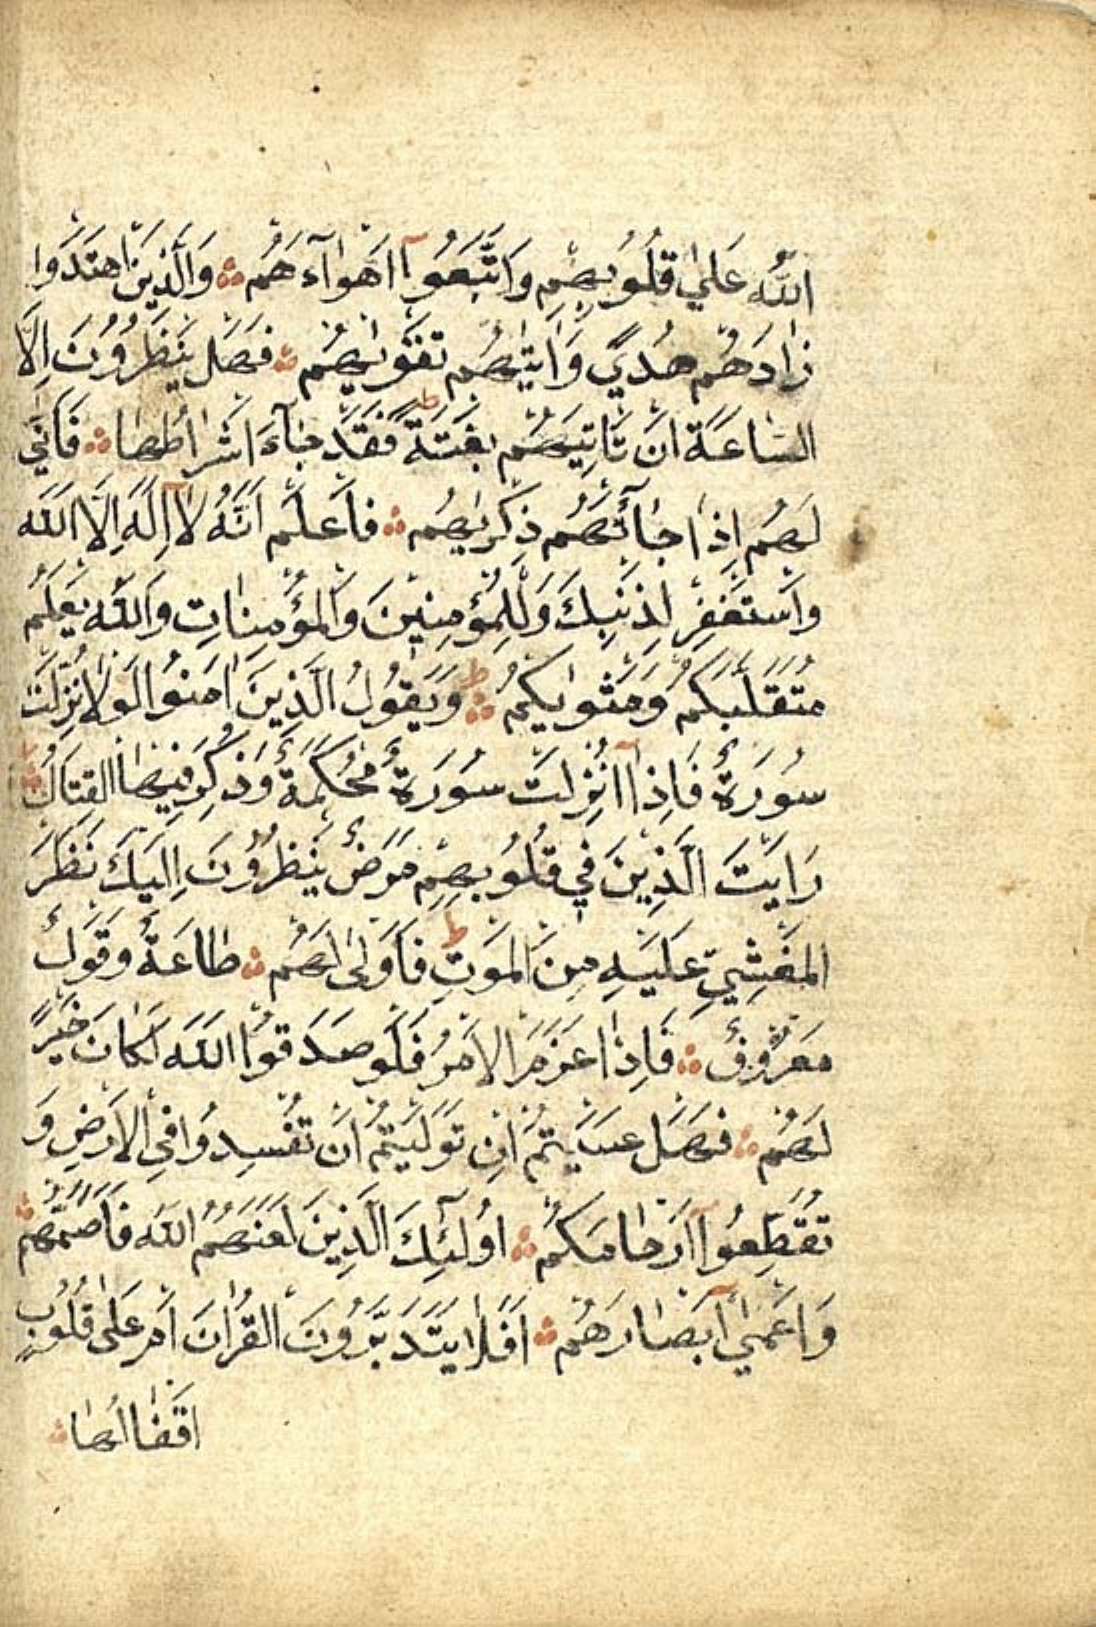 اللّٰهُ عَلٰي قُلُوبِهِمْ وَاتَّبَعُوا اَهْوَآءَهُمْ ۞ وَالَّذِينَ اهْتَدَوا
زَادَهُمْ هُدًي وَاٰتٰيهُمْ تَقْوٰيهُمْ ۞ فَهَلْ يَنْظُرُونَ اِلَّا
السَّاعَةَ اَنْ تَاْتِيَهُمْ بَغْتَةً ط فَقَدْ جَآءَ اَشْرَاطُهَا ۞ فَاَنّٰي
لَهُمْ اِذَا جَآءَتْهُمْ ذِكْرٰيهُمْ ۞ فَاعْلَمْ اَنَّهُ لَآ اِلٰهَ اِلَّا اللّٰهُ
وَاسْتَغْفِرْ لِذَنْبِكَ وَلِلْمُؤْمِنِينَ وَالْمُؤْمِنَاتِ وَاللّٰهُ يَعْلَمُ
مُتَقَلَّبَكُمْ وَمَثْوٰيكُمْ ط ۞ وَيَقُولُ الَّذِينَ اٰمَنُوا لَوْلَا نُزِّلَتْ
سُورَةٌ فَاِذَآ اُنْزِلَتْ سُورَةٌ مُحْكَمَةٌ وَذُكِرَ فِيهَا الْقِتَالُ ۞
رَاَيْتَ الَّذِينَ فِي قُلُوبِهِمْ مَرَضٌ يَنْظُرُونَ اِلَيْكَ نَظَرَ
الْمَغْشِيِّ عَلَيْهِ مِنَ الْمَوْتِ ط فَاَوْلٰى لَهُمْ ۞ طَاعَةٌ وَقَوْلٌ
مَعْرُوفٌ ۞ فَاِذَا عَزَمَ الْاَمْرُ فَلَوْ صَدَقُوا اللّٰهَ لَكَانَ خَيْرًا
لَهُمْ ۞ فَهَلْ عَسَيْتُمْ اِنْ تَوَلَّيْتُمْ اَنْ تُفْسِدُوا فِي الْاَرْضِ وَ
تُقَطِّعُوآ اَرْحَامَكُمْ ۞ اُولٰٓئِكَ الَّذِينَ لَعَنَهُمُ اللّٰهُ فَاَصَمَّهُمْ ۞
وَاَعْمٰيٓ اَبْصَارَهُمْ ۞ اَفَلَا يَتَدَبَّرُونَ الْقُرْاٰنَ اَمْ عَلٰى قُلُوبٍ
اَقْفَالُهَا ۞